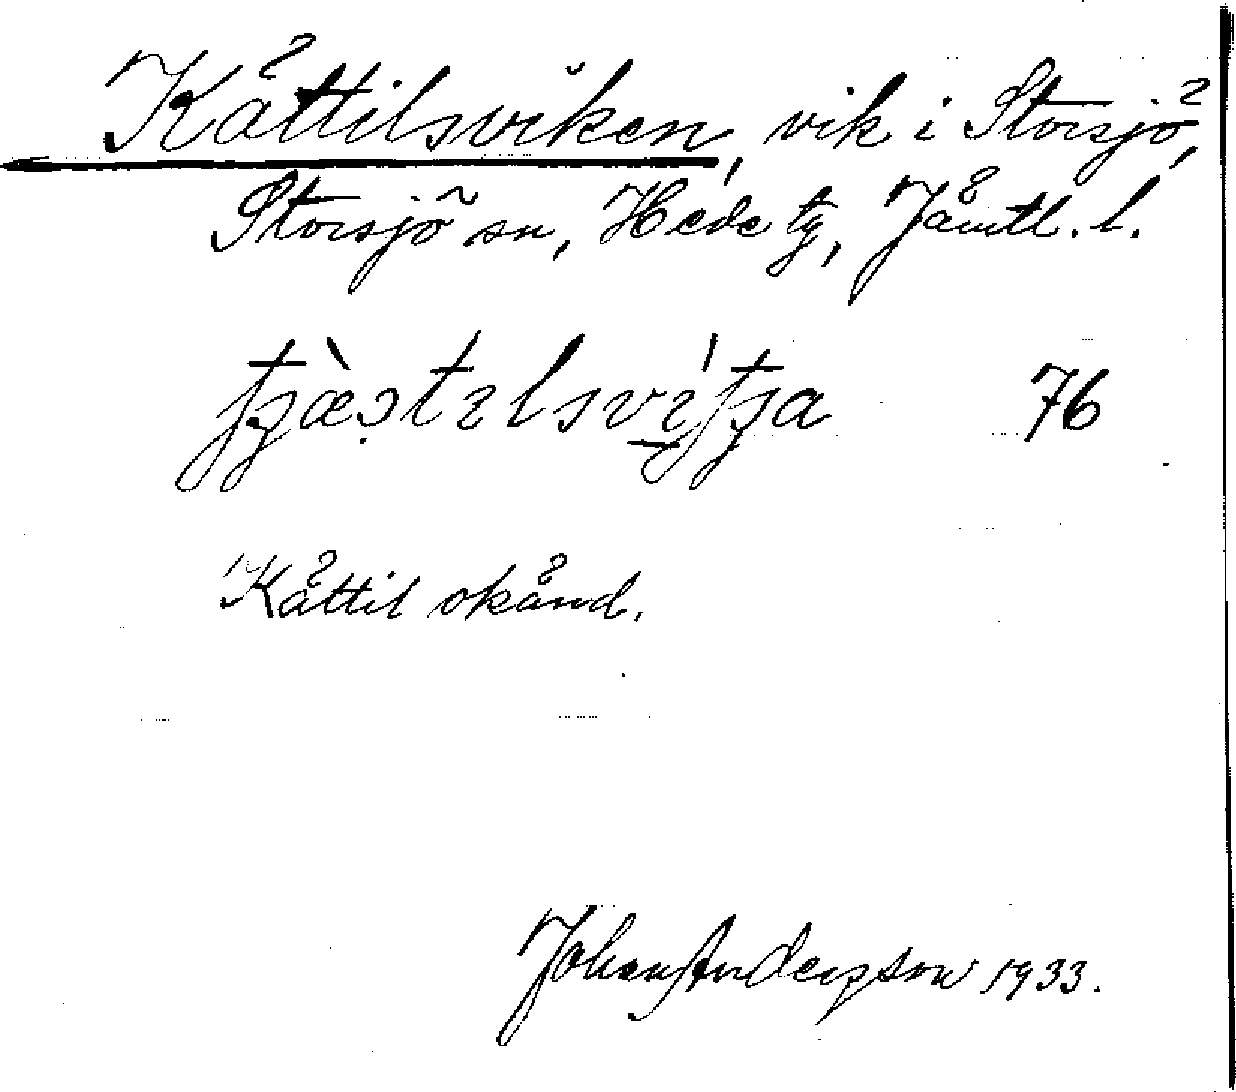 Kättilsviken, vik i Storsjö,
Storsjö sn, Hede tg, Jämtl. l.
76
Kättil okänd.
Johan Andersson 1933.